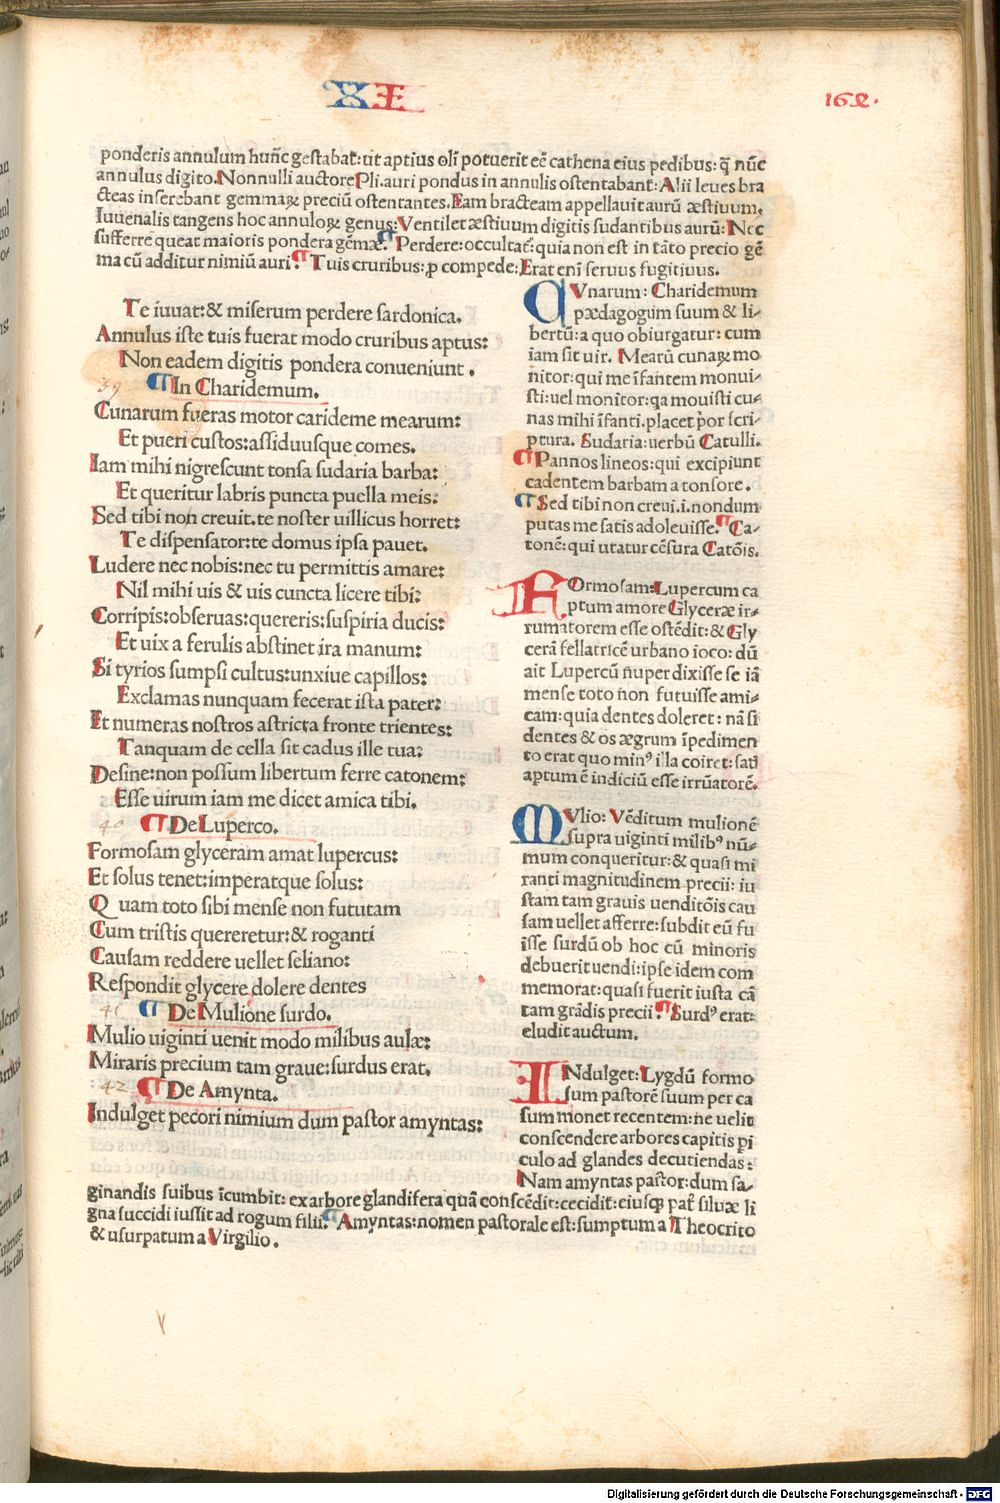 XI
162.
ponderis annulum hunc̄ gestabat: ut aptius oli᷑ potuerit eē cathena eius pedibus: q̄ nūc
annulus digito. Nonnulli auctore Pli. auri pondus in annulis ostentabant: Alii leues bra
cteas inserebant gemmaꝝ preciū ostentantes. Eam bracteam appellauit aurū æstiuum.
Iuuenalis tangens hoc annuloꝝ genus: Ventilet æstiuum digitis sudantibus aurū: Nec
sufferre queat maioris pondera gēmæ. ¶ Perdere: occultat: quia non est in tāto precio gē
ma cū additur nimiū auri. ¶ Tuis cruribus: ꝓ compede: Erat eni᷑ seruus fugitiuus.
Te iuuat: & miserum perdere sardonica.
Annulus iste tuis fuerat modo cruribus aptus:
Non eadem digitis pondera conueniunt.
39 ¶ In Charidemum.
Cunarum fueras motor carideme mearum:
Et pueri custos: assiduusque comes.
Iam mihi nigrescunt tonsa sudaria barba:
Et queritur labris puncta puella meis:
Sed tibi non creuit. te noster uillicus horret:
Te dispensator: te domus ipsa pauet.
Ludere nec nobis: nec tu permittis amare:
Nil mihi uis & uis cuncta licere tibi:
Corripis: obseruas: quereris: suspiria ducis:
Et uix a ferulis abstinet ira manum:
Si tyrios sumpsi cultus: unxiue capillos:
Exclamas nunquam fecerat ista pater:
Et numeras nostros astricta fronte trientes:
Tanquam de cella sit cadus ille tua:
Desine: non possum libertum ferre catonem:
Esse uirum iam me dicet amica tibi.
40 ¶ De Luperco.
Formosam glyceram amat lupercus:
Et solus tenet: imperatque solus:
Quam toto sibi mense non fututam
Cum tristis quereretur: & roganti
Causam reddere uellet seliano:
Respondit glycere dolere dentes
41 ¶ De Mulione surdo.
Mulio uiginti uenit modo milibus aulæ:
Miraris precium tam graue: surdus erat.
42 ¶ De Amynta.
Indulget pecori nimium dum pastor amyntas:
CVnarum: Charidemum
pædagogum suum & li-
bertū: a quo obiurgatur: cum
iam sit uir. Mearū cunaꝝ mo
nitor: qui me īfantem monui-
sti: uel monitor: qa mouisti cu-
nas mihi īfanti. placet p̄or scri-
ptura. Sudaria: uerbū Catulli.
¶ Pannos lineos: qui excipiunt
cadentem barbam a tonsore.
¶ Sed tibi non creui. i. nondum
putas me satis adoleuisse. ¶ Ca-
tonē: qui utatur cēsura Catōis.
FOrmosam: Lupercum ca
ptum amore Glyceræ ir-
rumatorem esse ostēdit: & Gly
cerā fellatricē urbano ioco: dū
ait Lupercū nuper dixisse se iā
mense toto non futuisse ami-
cam: quia dentes doleret: nā si
dentes & os ægrum īpedimen
to erat quo min⁹ illa coiret: sat᷑
aptum ē indiciū esse irrūatorē.
MVlio: Vēditum mulionē
supra uiginti milib⁹ nū-
mum conqueritur: & quasi mi
ranti magnitudinem precii: iu
stam tam grauis uenditōis cau
sam uellet afferre: subdit eū fu
isse surdū ob hoc cū minoris
debuerit uendi: ipse idem com
memorat: quasi fuerit iusta cā
tam grādis precii. ¶ Surd⁹ erat:
eludit auctum.
INdulget: Lygdū formo
sum pastorē suum per ca
sum monet recentem: ne uelit
conscendere arbores capitis pi
culo ad glandes decutiendas:
Nam amyntas pastor: dum sa-
ginandis suibus īcumbit: ex arbore glandifera quā conscēdit: cecidit: eiusqꝫ pat᷑ siluæ li
gna succidi iussit ad rogum filii. ¶ Amyntas: nomen pastorale est: sumptum a Theocrito
& usurpatum a Virgilio.
Digitalisierung gefördert durch die Deutsche Forschungsgemeinschaft - DFG